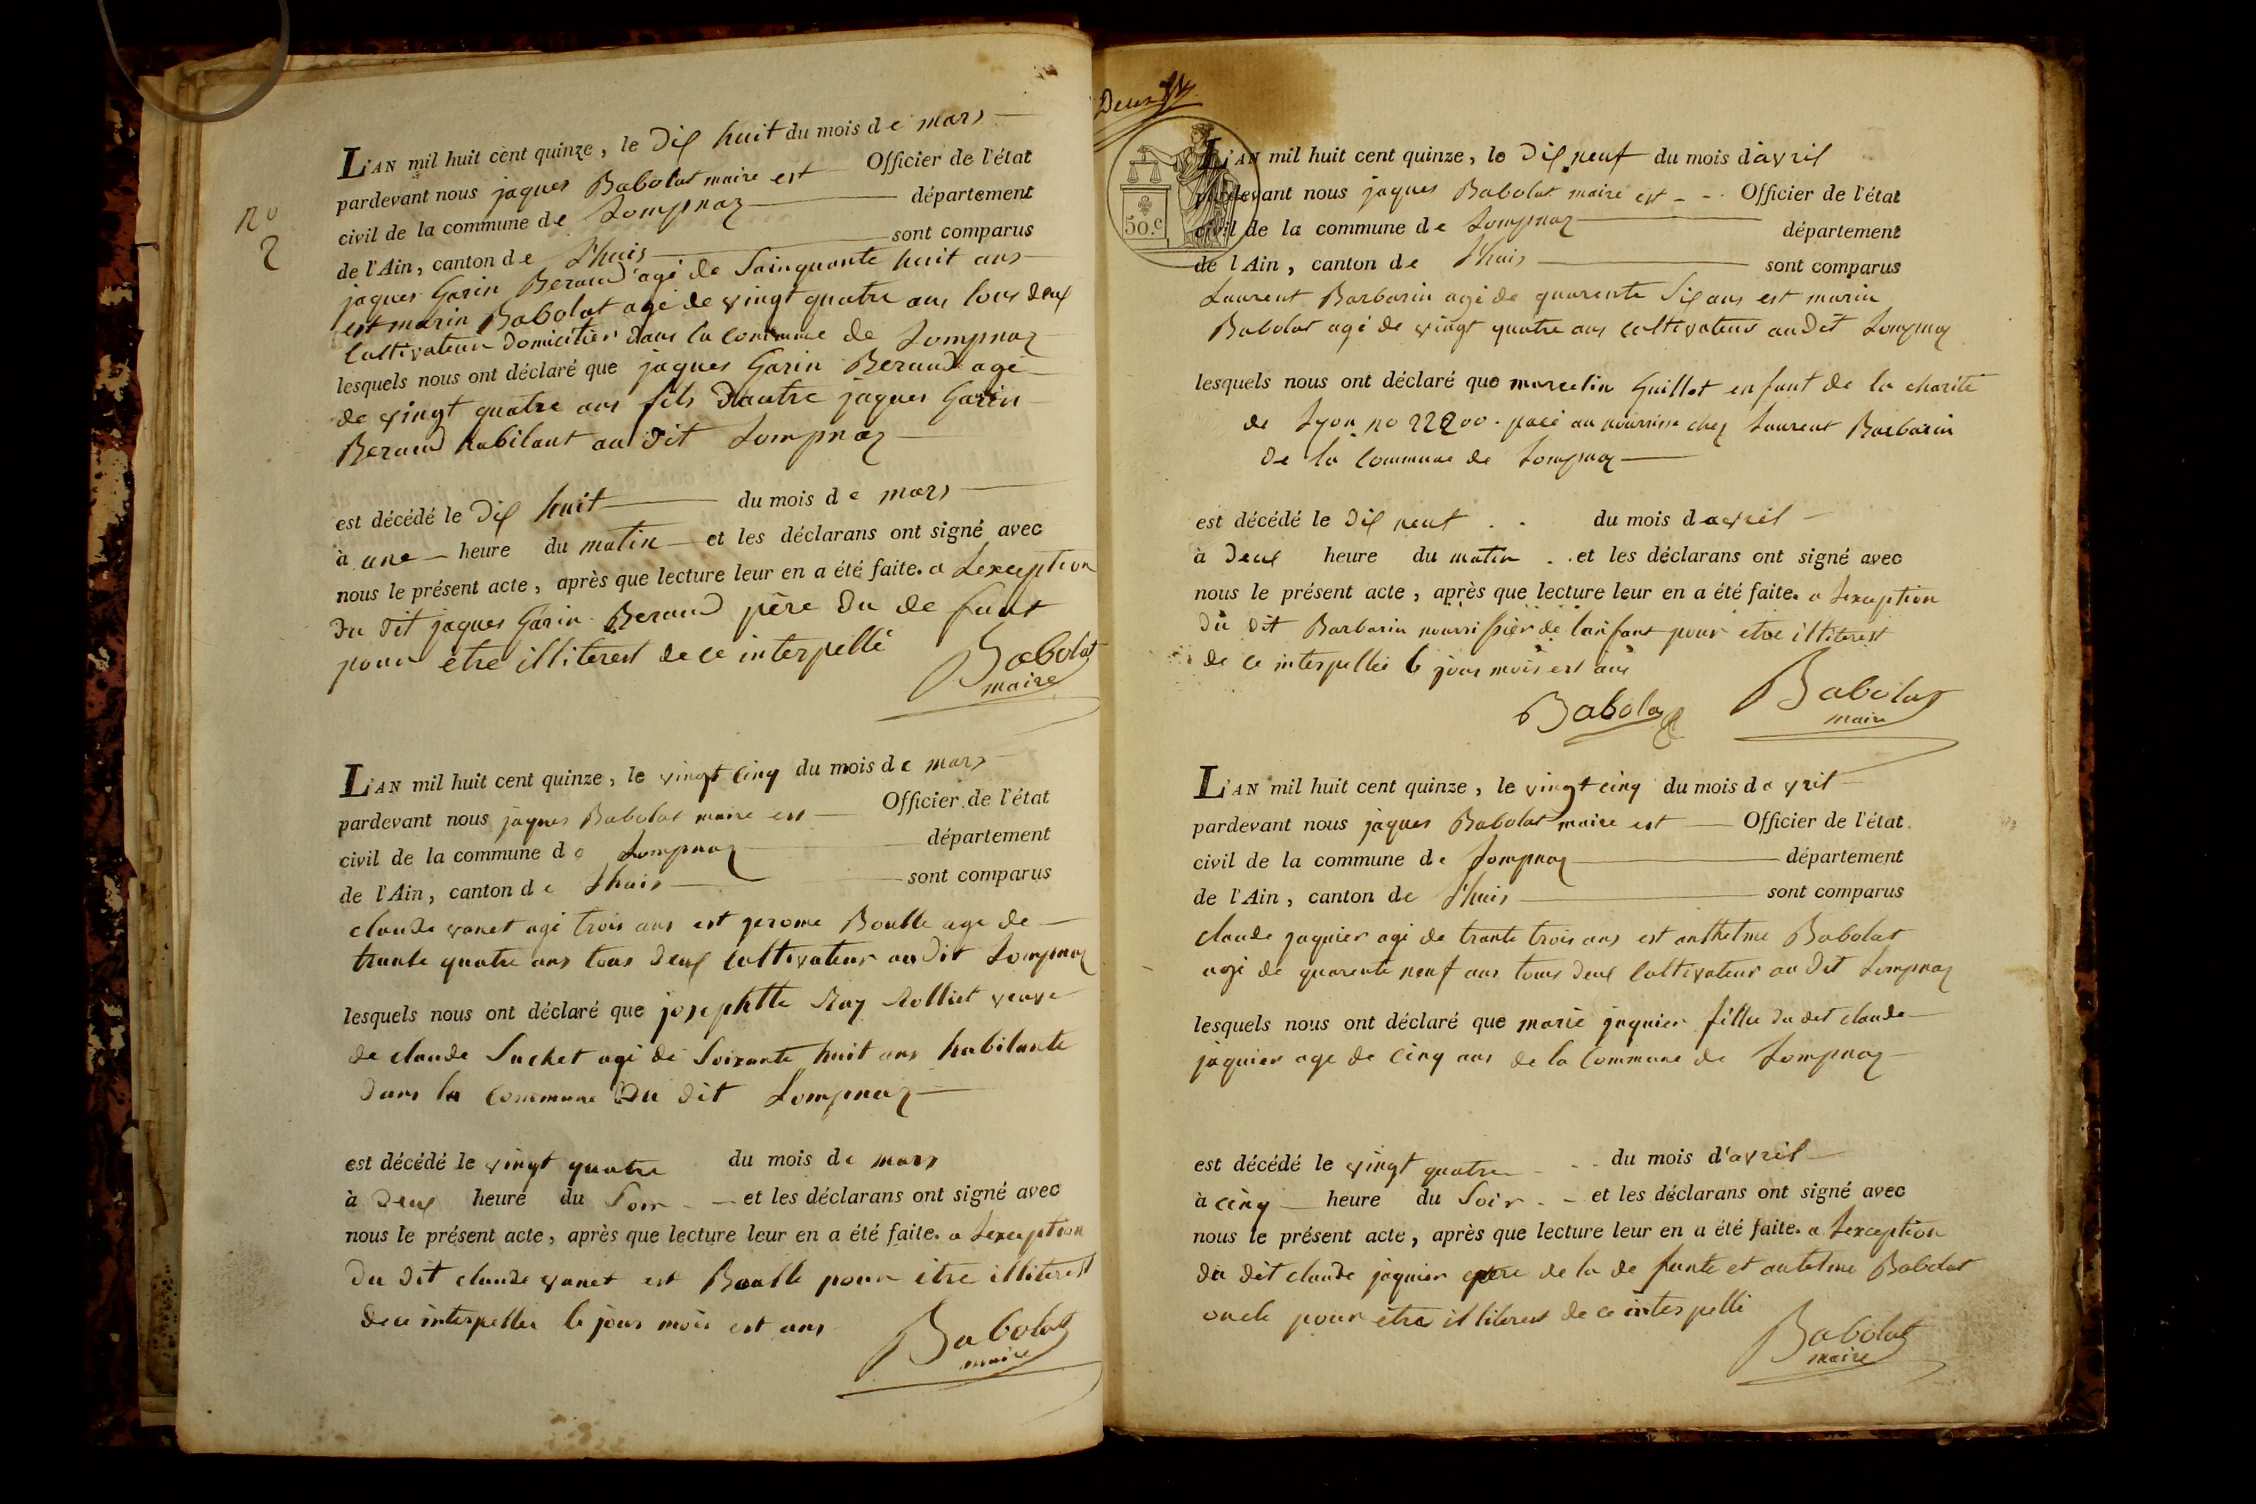 n°
2
L'AN mil huit cent quinze, le dix huit du mois de mars
pardevant nous jaques Babolat maire est Officier de l'état
civil de la commune de Lompnaz département
de l'Ain, canton de Lhuis sont comparus
jaques Garin Beraud agé de Sainquante huit ans
est marin Babolat agé de vingt quatre ans tous deux
Cultivateur domicilier dans la commune de Lompnaz
lesquels nous ont déclaré que jaques Garin Beraud agé
de vingt quatre ans fils dautre jaques Garin
Beraud habitant au dit Lompnaz
est décédé le dix huit du mois de mars
à une heure du matin et les déclarans ont signé avec
nous le présent acte, après que lecture leur en a été faite. a Lexception
du dit jaques Garin Beraud père du de funt
pour etre illiterest de ce interpellé
Babolat
maire
L'AN mil huit cent quinze, le vingt cinq du mois de mars
pardevant nous jaques Babolat maire est Officier de l'état
civil de la commune de Lompnaz département
de l'Ain, canton de Lhuis sont comparus
claude vanet agé trois ans est jerome Boulle age de
trante quatre ans tous deux Cultivateur au dit Lompnaz
lesquels nous ont déclaré que josephtte Ray Rolliet veuve
de claude Suchet agé de Soixante huit ans habitante
dans la commune du dit Lompnaz
est décédé le vingt quatre du mois de mars
à deux heure du Soir et les déclarans ont signé avec
nous le présent acte, après que lecture leur en a été faite. a Lexception
du dit claude vanet est Boulle pour être illiterest
de ce interpellée le jour mois est ans
Babolat
maire
Deux
50.c
L'AN mil huit cent quinze, le dix neuf du mois d'avril
pardevant nous jaques Babolat maire est Officier de l'état
civil de la commune de Lompnaz département
de l'Ain, canton de Lhuis sont comparus
Laurent Barbarin agé de quarente Six ans est marin
Babolat agé de vingt quatre ans cultivateur au dit Lompnaz
lesquels nous ont déclaré que marcelin Guillot enfant de la charite
de Lyon no 22200. placé au nourrisse chez Laurent Barbarin
de la commune de Lompnaz
est décédé le dix neuf du mois davril
à deux heure du matin et les déclarans ont signé avec
nous le présent acte, après que lecture leur en a été faite. a Lexception
du dit Barbarin nourrissier de lanfant pour etre illiterest
de ce interpellée le jour mois est ans
Babolat
Babolat
maire
L'AN mil huit cent quinze, le vingt cinq du mois davril
pardevant nous jaques Babolat maire est Officier de l'état
civil de la commune de Lompnaz département
de l'Ain, canton de Lhuis sont comparus
claude jaquier agé de trante trois ans est anthelme Babolat
agé de quarente neuf ans tous deux Cultivateur au dit Lompnaz
lesquels nous ont déclaré que marie jaquier fillie du dit claude
jaquier age de cinq ans de la Commune de Lompnaz
est décédé le vingt quatre du mois d'avril
à cinq heure du Soir et les déclarans ont signé avec
nous le présent acte, après que lecture leur en a été faite. a Lexception
du dit claude jaquier pere de la de funte et antelme Babolat
oncle pour etre illiterest de ce interpellé
Babolat
maire